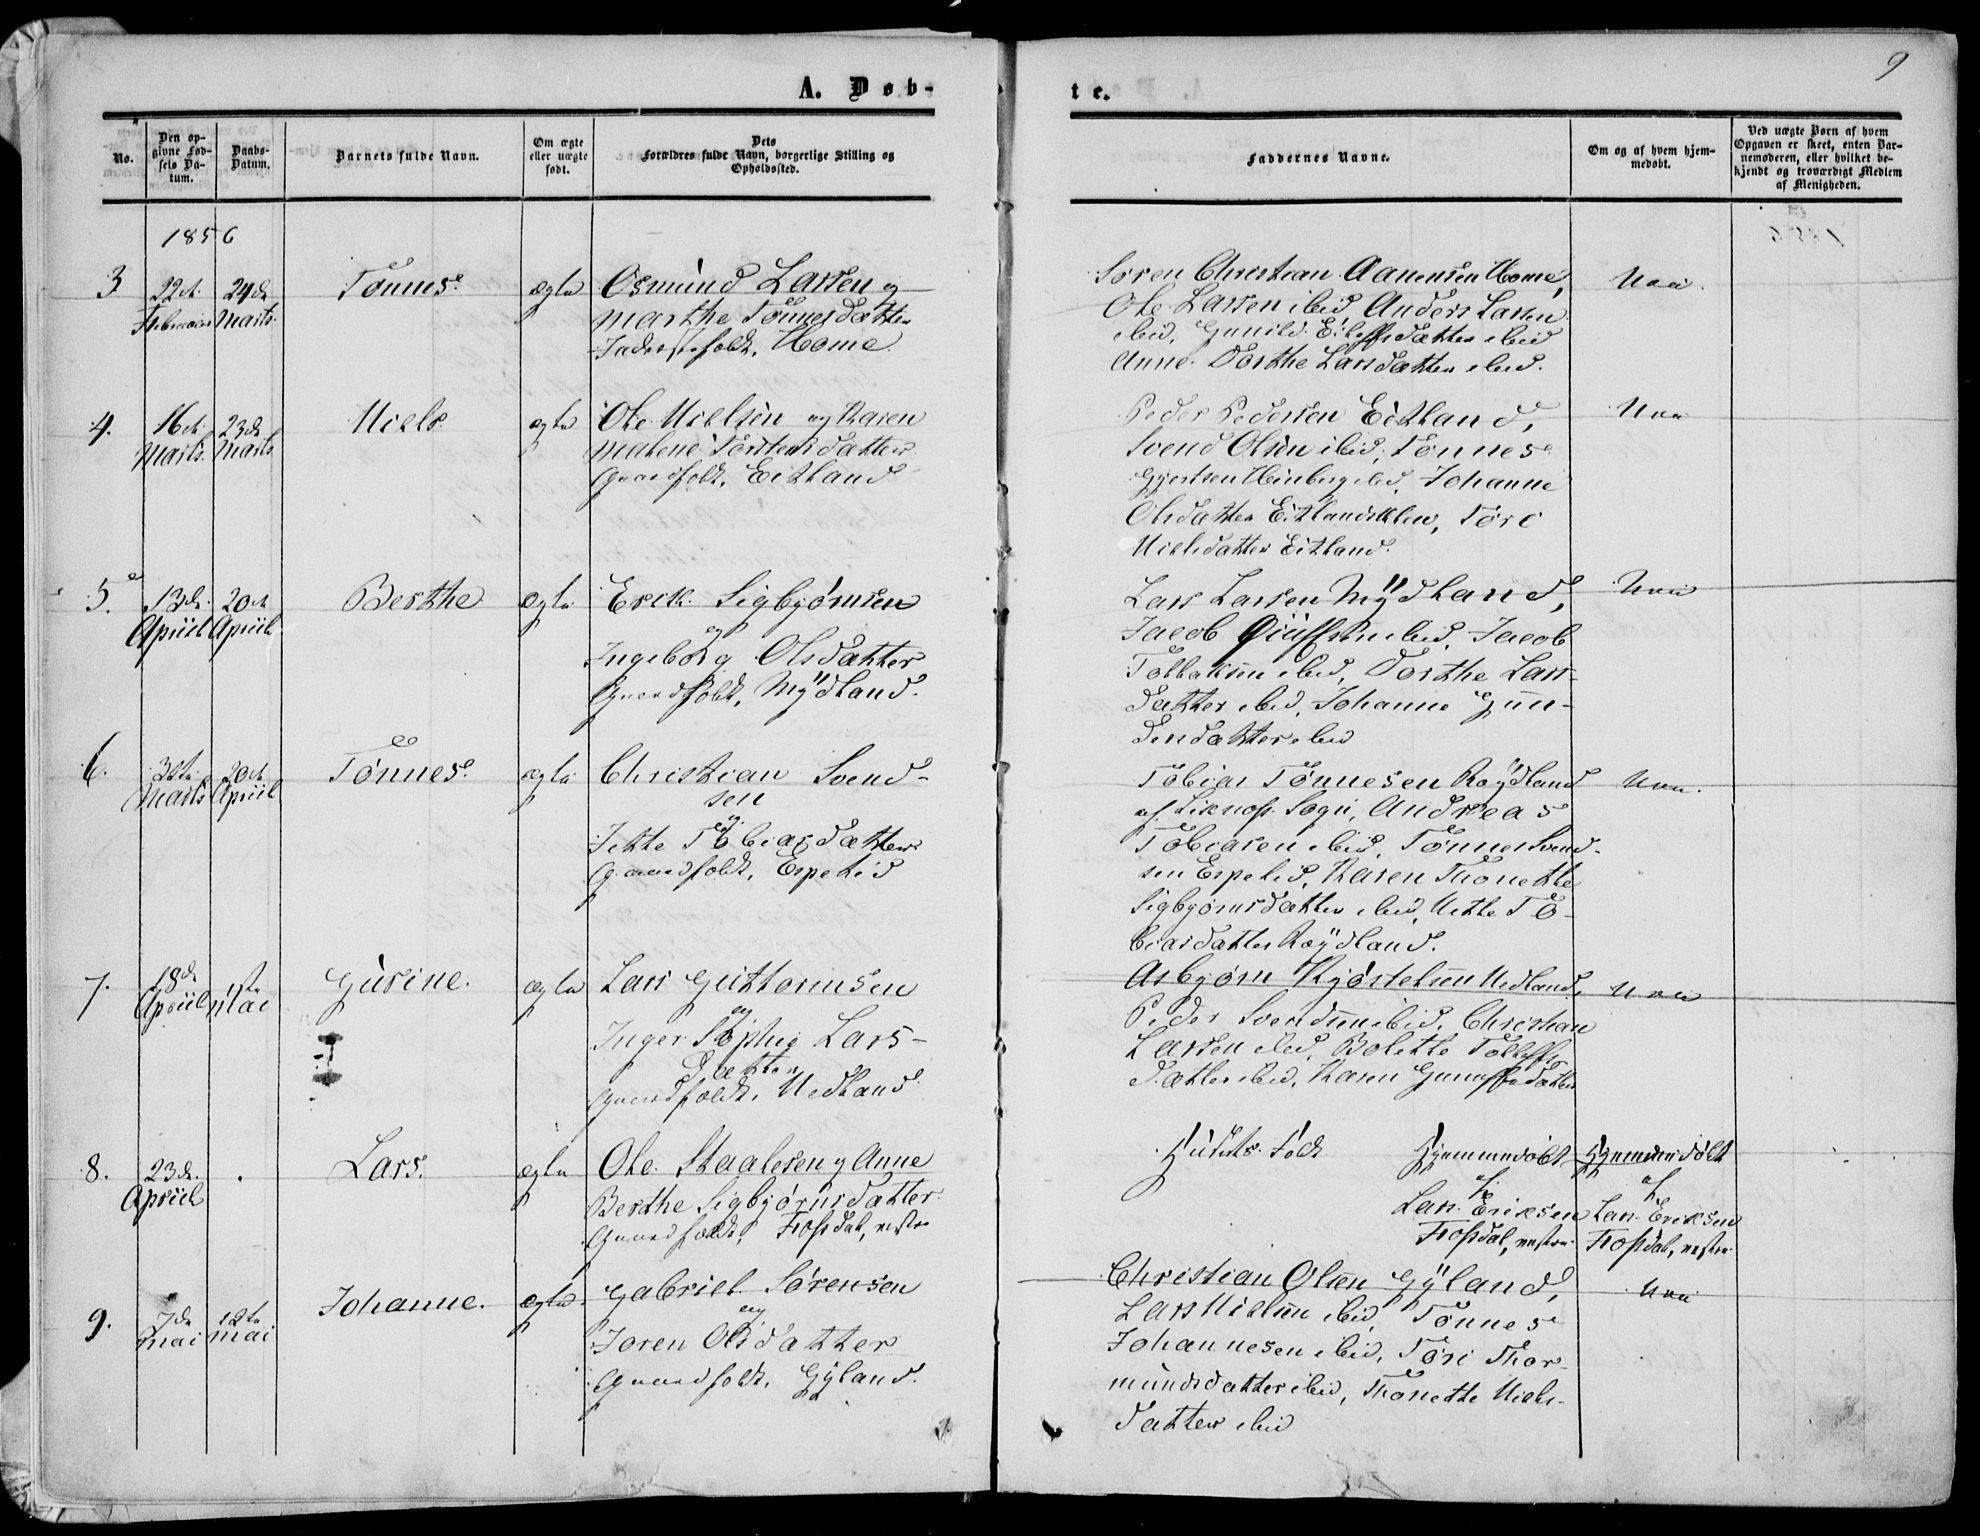 9
A. Døb-
te.
No.
Den op-
givne Fød-
sels Da-
tum.
Daabs-
Datum.
Barnets fulde Navn.
Om ægte
eller uægte
født.
Dets
Forældres fulde Navn, borgerlige Stilling og
Opholdssted.
Faddernes Navne.
Om og af hvem hjem-
medøbt.
Ved uægte Børn af hvem
Opgaven er skeet, enten Bar-
nemoderen, eller hvilket be-
kjendt og troværdigt Medlem
af Menigheden.
1856
3
22de
Februar
24de
Marts
Tønnes
ægte
Osmund Larsen og
Marthe Tønnesdatter
Home
Søren Christian Aanensen Home,
Ole Larsen ibid, Anders Larsen
ibid, Gunild Eileffsdatter ibid
Anne Dorthe Larsdatter ibid.
Nei
4.
16de
Marts
23de
Marts
Niels
ægte
Ole Nielsen og Karen
Malene Torstensdatter
Gaardfolk, Eitland
Peder Pedersen Eitland,
Svend Olsen ibid, Tønnes
Gjertsen ibid, Johanne
Olsdatter Tøri
Nielsdatter Eitland.
Nei
5.
13de
Apriil
20de
Apriil
Berthe
ægte
Erik Sigbjørnsen
og
Ingeborg Olsdatter
Gaardfolk, Mydland.
Lars Larsen Mydland,
Jacob ibid, Jacob
Tollaksen ibid, Dorthe Lars-
datter ibid, Johanne Gun-
dersdatter ibid
Nei
6.
Marts
20de
Apriil
Tønnes
ægte
Christian Svend-
sen
og
Jette Tobiasdatter
Gaardfolk, Espelid
Tobias Tønnesen Røydland
af Sogn, Andreas
Tobiasen ibid, Tønnes Svend-
sen Espelid, Karen Thonette
Sigbjørnsdatter ibid, To-
biasdatter Røydland.
Nei.
7.
18de
Apriil
1ste
Mai
Gusine.
ægte
Lars Guttormsen
og
Inger Sophie Lars-
datter
Gaardfolk, Nedland
Asbjørn Kjøstelsen Nedland,
Peder Svendsen ibid, Christian
Larsen ibid, Bolette Tolleffs-
datter ibid, Karen
Nei
8.
23de
Apriil
Lars.
ægte
Ole Staalesen og Anne
Berthe Sigbjørnsdatter
Gaardfolk, Frøsdal, vestre
Hjemmedøbt
af
Lars Eriksen
Frøsdal, vestre
Hjemmedøbt
af
Lars Eriksen
Frøsdal, vestre
9.
7de
Mai
12te
Mai
Johanne.
ægte
Gabriel Sørensen
og
Joren Olsdatter
Gaardfolk, Gyland.
Christian Olsen Gyland,
Lars Nielsen ibid, Tønnes
Johannesen ibid, Tøri Thor-
mundsdatter ibid, Thonette Niels-
datter ibid
Nei